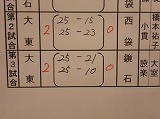 第2試合 大東 2 25-15 0 西袋 小貫 橋本祐子
25-23
第3試合 大東 2 25-21 0 鏡石 設楽 大室
25-10